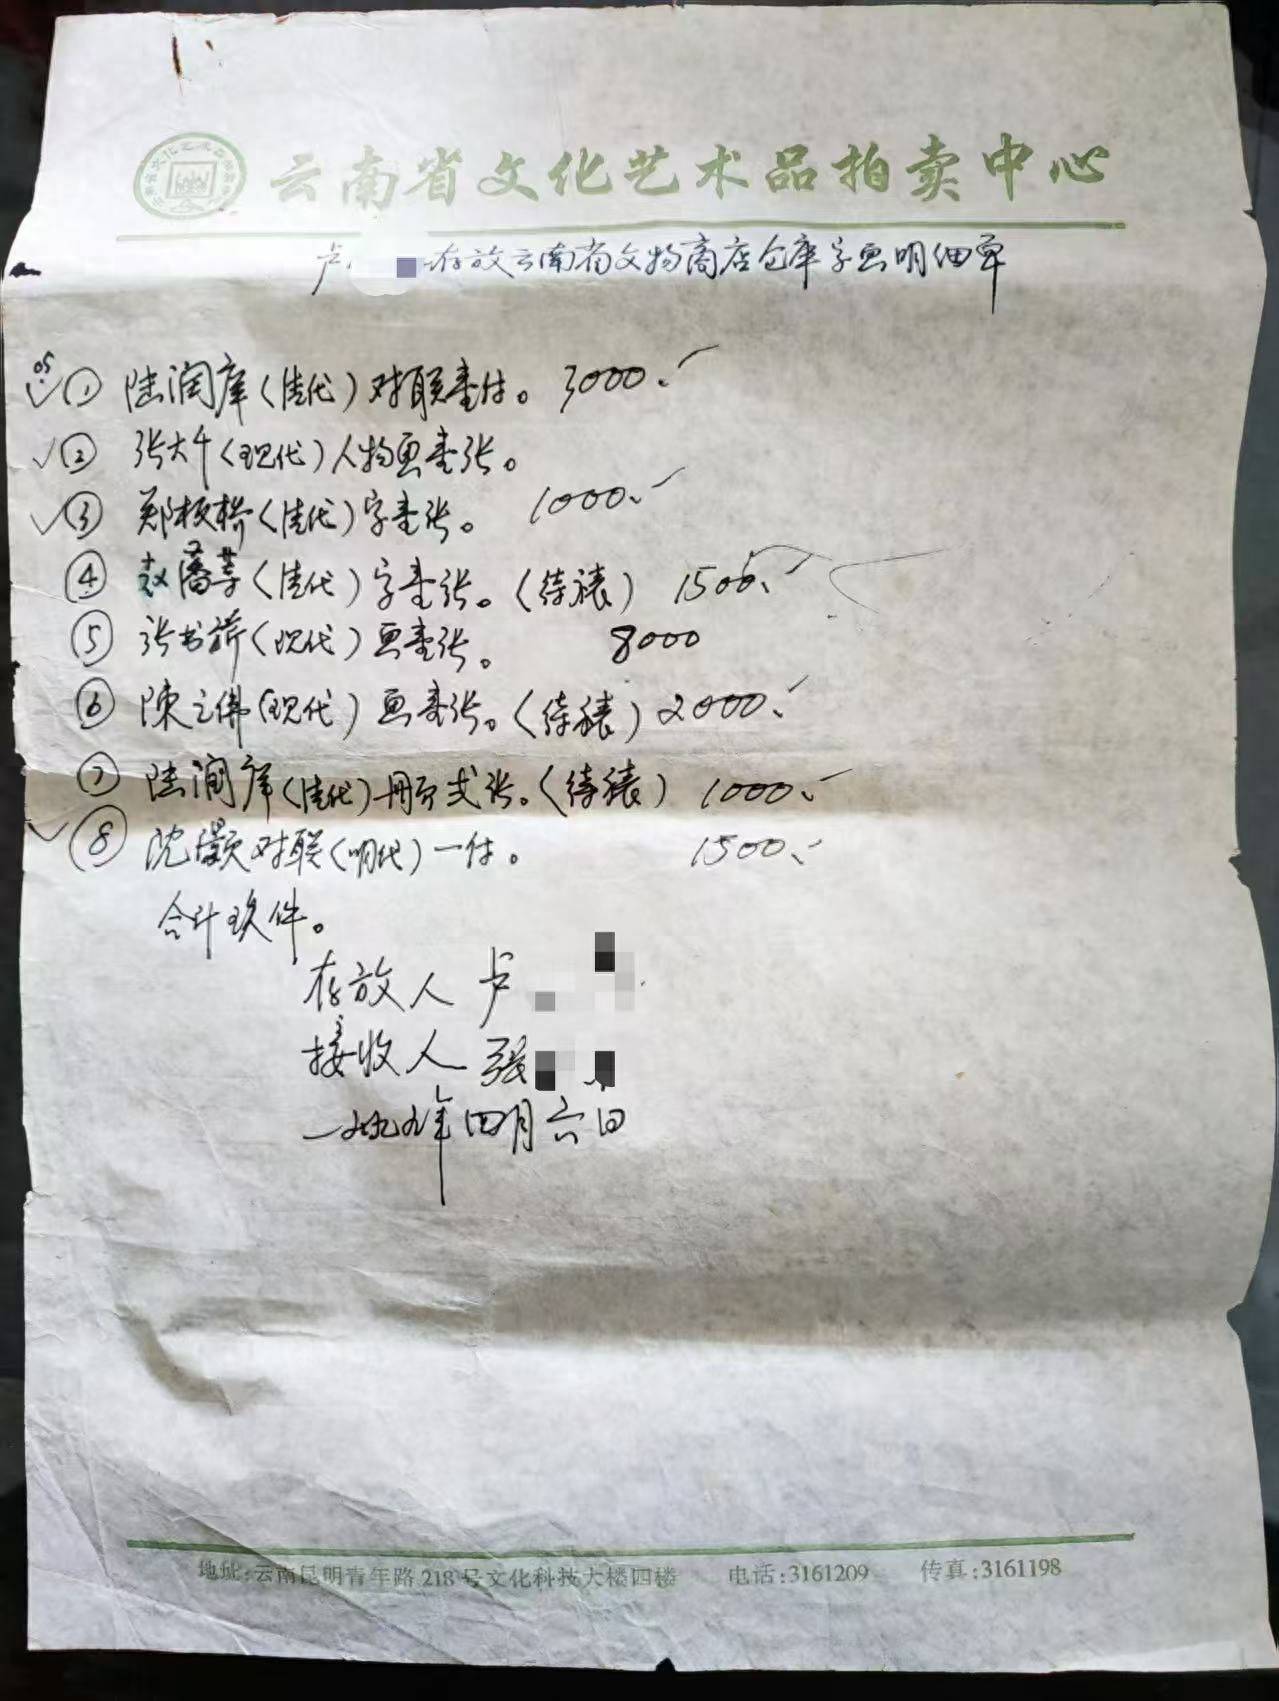 云南省文化艺术品拍卖中心
卢 存放云南省文物商店仓库字画明细单
05
① 陆润庠（清代）对联壹付。 3000.
② 张大千（现代）人物画壹张。
③ 郑板桥（清代）字壹张。 1000.
④ 赵藩等（清代）字壹张。（待裱） 1500.
⑤ 张书旂（现代）画壹张。 8000
⑥ 陳之佛（现代）画壹张。（待裱） 2000.
⑦ 陆润庠（清代）册页弍张。（待裱） 1000.
⑧ 沈灏对联（明代）一付。 1500.
合计玖件。
存放人 卢
接收人 张
一九九九年四月六日
地址:云南昆明青年路218号文化科技大楼四楼 电话:3161209 传真:3161198